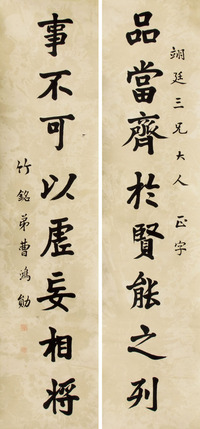 翊廷三兄大人 正字
品當齊於賢能之列
事不可以虛妄相將
竹銘弟曹鴻勛